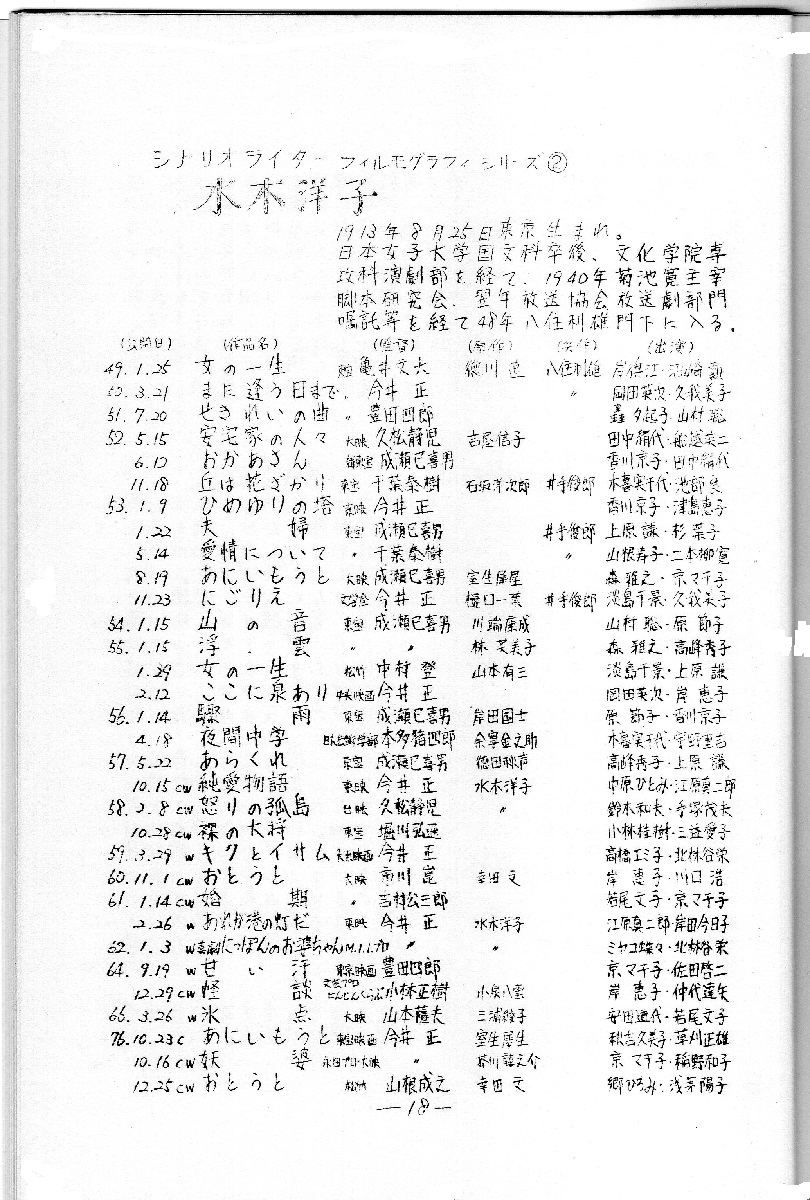 シナリオライター フィルモグラフィシリーズ②
水木洋子
1913年8月25日東京生まれ。
日本女子大学国文科卒後、文化学院専
攻科演劇部を経て、1940年菊池寛主宰
脚本研究会、翌年放送協会放送劇部門
嘱託等を経て48年八住利雄門下に入る。
(公開日) (作品名) (監督) (原作) (共作) (出演)
49.1.25 女の一生 亀井文夫 八住利雄 岸旗江・
50.3.21 また逢う日まで 今井正 〃 岡田英次・久我美子
51.7.20 せきれいの曲 〃 豊田四郎 轟夕起子・山村聡
52.5.15 安宅家の人々 大映 久松静児 吉屋信子 田中絹代・船越英二
6.12 おかあさん 新東宝 成瀬巳喜男 香川京子・田中絹代
11.18 丘は花ざかり 東宝 千葉泰樹 石坂洋次郎 井手俊郎 木暮実千代・池部良
53.1.9 ひめゆりの塔 東映 今井正 香川京子・津島恵子
1.22 夫婦 東宝 成瀬巳喜男 井手俊郎 上原謙・杉葉子
5.14 愛情について 〃 千葉泰樹 〃 山根寿子・二本柳寛
8.19 あにいもうと 大映 成瀬巳喜男 室生犀星 森雅之・京マチ子
11.23 にごりえ 今井正 樋口一葉 井手俊郎 淡島千景・久我美子
54.1.15 山の音 東宝 成瀬巳喜男 川端康成 山村聡・原節子
55.1.15 浮雲 〃 〃 林芙美子 森雅之・高峰秀子
1.29 女の一生 松竹 中村登 山本有三 淡島千景・上原謙
2.12 ここに泉あり 中央映画 今井正 岡田英次・岸恵子
56.1.14 驟雨 東宝 成瀬巳喜男 岸田国士 原節子・香川京子
4.18 夜間中学 日大芸術学部 本多猪四郎 余寧金之助 木暮実千代・宇野重吉
57.5.22 あらくれ 東宝 成瀬巳喜男 徳田秋声 高峰秀子・上原謙
10.15 cw 純愛物語 東映 今井正 水木洋子 中原ひとみ・江原真二郎
58.2.8 cw 怒りの孤島 日映 久松静児 〃 鈴木和夫・手塚茂夫
10.28 cw 裸の大将 東宝 堀川弘通 小林桂樹・三益愛子
59.3.29 w キクとイサム 大東映画 今井正 高橋エミ子・北林谷栄
60.11.1 cw おとうと 大映 市川崑 幸田文 岸恵子・川口浩
61.1.14 cw 婚期 〃 吉村公三郎 若尾文子・京マチ子
2.26 w あれが港の灯だ 東映 今井正 水木洋子 江原真二郎・岸田今日子
62.1.3 w 喜劇にっぽんのお婆ちゃん M.I.I.プロ 〃 〃 ミヤコ蝶々・北林谷栄
64.9.19 w 甘い汗 東京映画 豊田四郎 京マチ子・佐田啓二
12.29 cw 怪談 文芸プロにんじんくらぶ 小林正樹 小泉八雲 岸恵子・仲代達矢
66.3.26 w 氷点 大映 山本薩夫 三浦綾子 安田道代・若尾文子
76.10.23 c あにいもうと 東宝映画 今井正 室生犀星 秋吉久美子・草刈正雄
10.16 cw 妖婆 永田プロ・大映 〃 芥川龍之介 京マチ子・稲野和子
12.25 cw おとうと 松竹 山根成之 幸田文 郷ひろみ・浅茅陽子
—18—